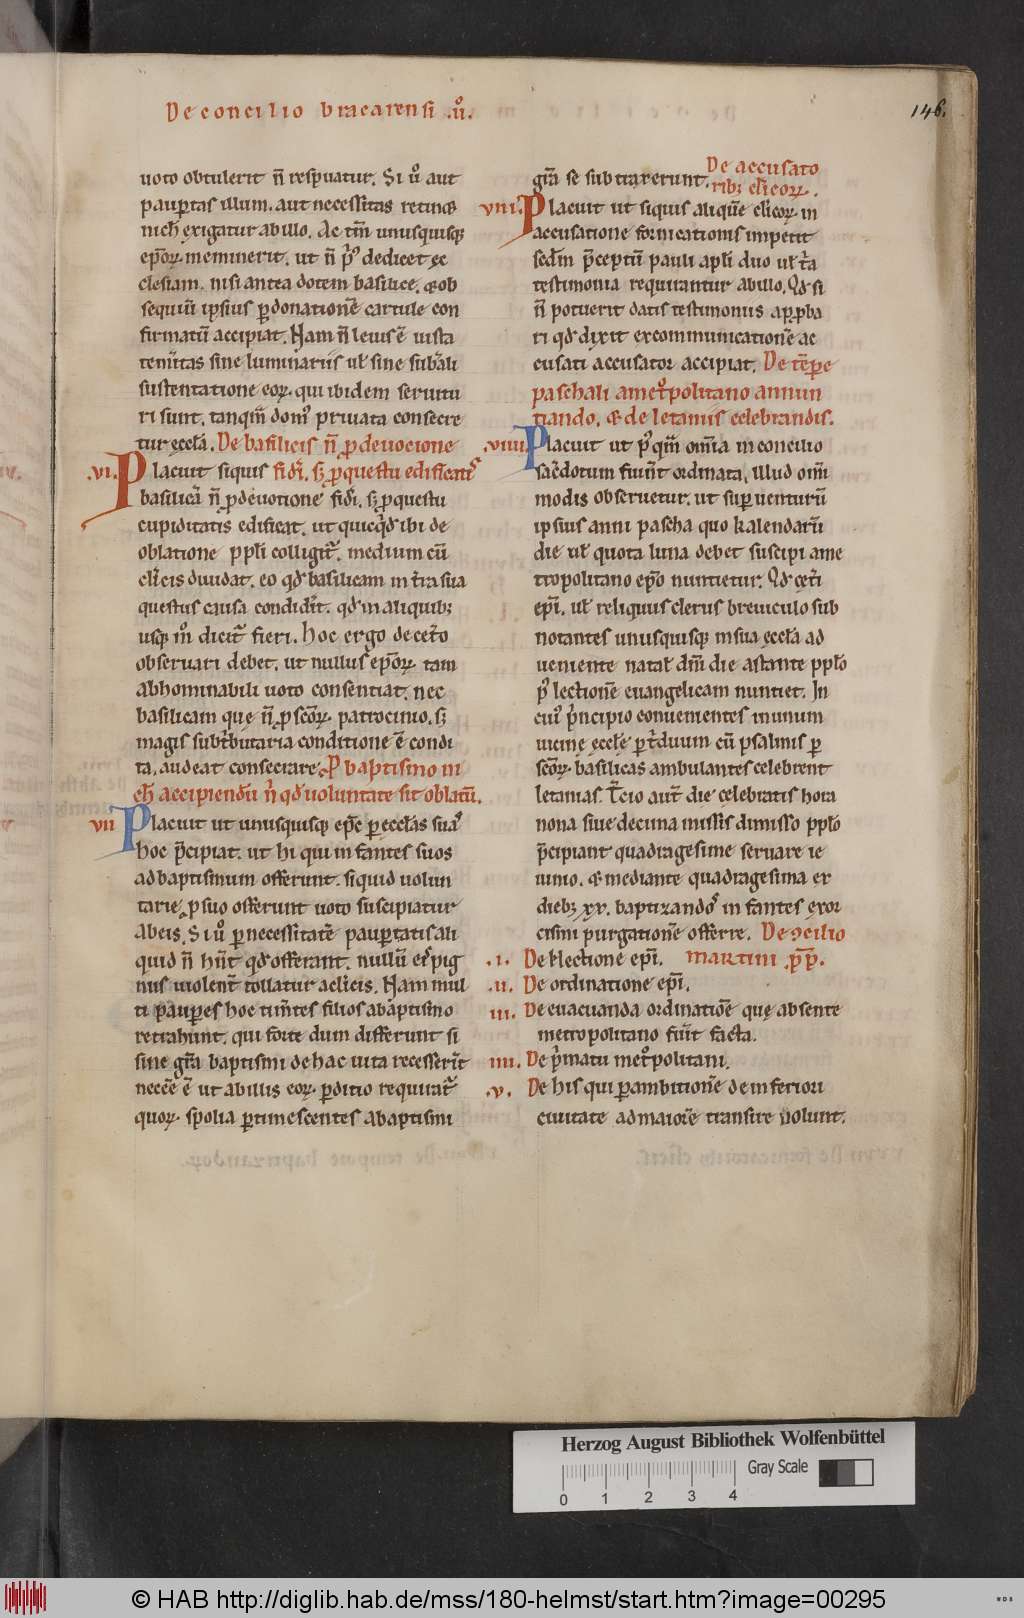 De concilio bracarensi .uͦ.
146.
uoto obtulerit n̄ respuatur. Si uͦ aut
paup̱tas illum. aut necessitas retinꝫ
nich̄ exigatur ab illo. Ac tm̄ unusquisqꝫ
ep̄oꝝ meminerit. ut n̄ p̓ꝰ dedicet ęc
clesiam. nisi antea dotem basilice. ⁊ ob
sequiū ipsius p̱ donationē cartule con
firmatū accipiat. Nam n̄ leuis ē iusta
tem̓itas sine luminariis ul̓ sine sub̓ali
sustentatione eoꝝ. qui ibidem seruitu
ri sunt. tanqm̄ domꝰ priuata consecre
tur ęcclā. De basilicis n̄ p̱ deuocione
.vi. Placuit siquis fid̓i. sꝫ p̱ questu edificatis
basilicā n̄ p̱ deuotione fid̓i. sꝫ p̱ questu
cupiditatis edificat. ut quicqͥd ibi de
oblatione ppl̓i colligit᷑. medium cū
cl̓icis diuidat. eo qd̓ basilicam in t̓ra sua
questus causa condid̓it. qd̓ in aliquibꝫ
usqꝫ mͦ dicit᷑ fieri. Hoc ergo de cet̓o
obseruari debet. ut nullus ep̄oꝝ tam
abhominabili uoto consentiat. nec
basilicam quę n̄ p̱ sc̄oꝝ patrocinio. sꝫ
magis subt̓butaria conditione ē condi
ta. audeat consecrare. P̱ baptismo ni
ch̓ accipiendū n̓ qd̓ uoluntate sit oblatū.
vii Placuit ut unusquisqꝫ ep̄c p̱ ęccl̓as suas
hoc p̄cipiat. ut hi qui infantes suos
ad baptismum offerunt. siquid uolun
tarie p̱ suo offerunt uoto suscipiatur
ab eis. Si uͦ p̱ necessitatē paup̱tatis ali
quid n̄ hn̄t qd̓ offerant. nullū eis pig
nus uiolent̓ tollatur a cl̓icis. Nam mul
ti paup̱es hoc tim̄tes filios a baptismo
retrahunt. qui forte dum differunt si
sine gr̄a baptismi de hac uita recesserīt
necēe ē ut ab illis eoꝝ p̱ditio requirat᷑
quoꝝ. spolia p̱timescentes a baptismi
gr̄a se subtraxerunt. De accusato
ribꝫ cl̓icoꝝ.
viii. Placuit ut siquis aliquē cl̓icoꝝ in
accusatione fornicationis impetit
sed̄m p̄ceptū pauli apl̓i duo ul̓ t̓a
testimonia requirantur ab illo. Qd̓ si
n̄ potuerit datis testimoniis app̱ba
ri qd̓ dixit excommunicationē ac
cusati accusator accipiat. De tēp̱e
paschali a met̓politano annun
tiando. ⁊ de letaniis celebrandis.
.viiii. Placuit ut pꝰqm̄ omīa in concilio
sac̓dotum fiun̄t ordinata. illud om̄i
modis obseruetur. ut sup̱uenturū
ipsius anni pascha quo kalendarū
die ul̓ quota luna debet suscipi a me
tropolitano ep̄o nuntietur. Qd̓ cęt̓i
ep̄i. ul̓ reliquus clerus breuiculo sub
notantes unusquisqꝫ in sua ęccl̓a ad
ueniente natal̓ dn̄i die astante ppl̓o
pꝰ lectionē euangelicam nuntiet. In
cuiꝰ p̓ncipio conuenientes in unum
uicinę ęccl̓ę p̱ t̓duum cū psalmis p̱
sc̄oꝝ. basilicas ambulantes celebrent
letanias. T̓cio aut̄ die celebratis hora
nona siue decima missis dimisso ppl̓o
p̄cipiant quadragesime seruare ie
iunio. ⁊ mediante quadragesima ex
diebꝫ xx. baptizandos infantes exor
cismi purgationē offerre. De ↄcilio
martini p̱p̱.
.i. De t̓lectione ep̄i.
.ii. De ordinatione ep̄i.
iii. De euacuanda ordinatiōe quę absente
metropolitano fuit̓ facta.
iiii. De p̓matu met̓politani.
.v. De his qui p̱ ambitionē de inferiori
ciuitate ad maiorē transire uolunt.
Herzog August Bibliothek Wolfenbüttel
Gray Scale
0 1 2 3 4
© HAB http://diglib.hab.de/mss/180-helmst/start.htm?image=00295